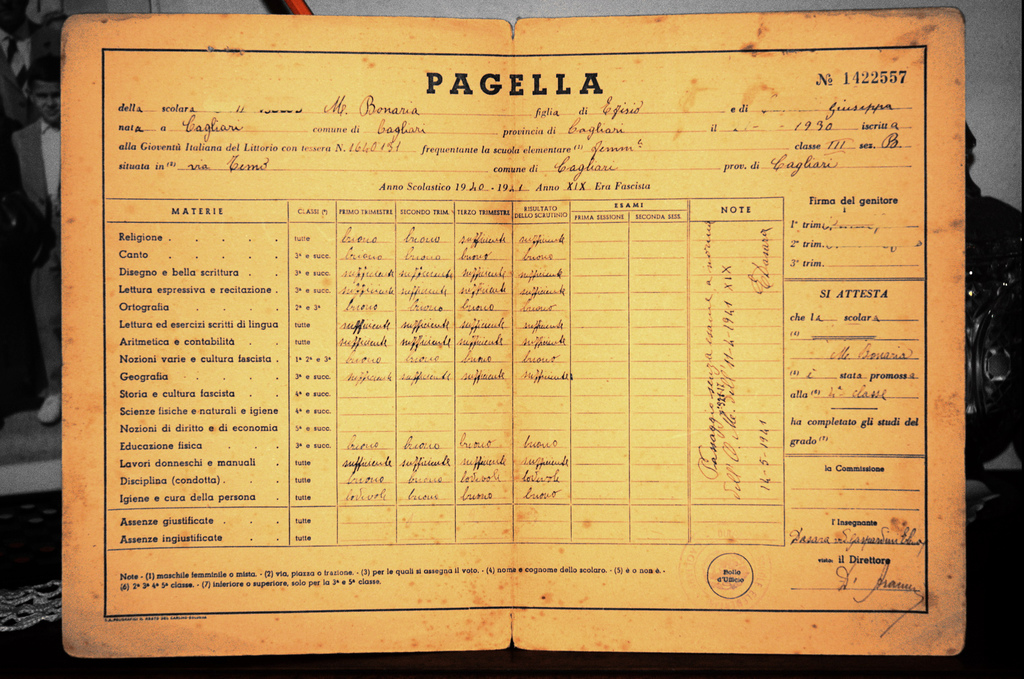 PAGELLA
№ 1422557
della scolara M. Bonaria figlia di Efisio e di Giuseppa
nata a Cagliari comune di Cagliari provincia di Cagliari il 1930 iscritta
alla Gioventù Italiana del Littorio con tessera N. 1640131 frequentante la scuola elementare (1) femm. classe III sez. B.
situata in (2) via comune di Cagliari prov. di Cagliari
Anno Scolastico 1940 - 1941 Anno XIX Era Fascista
MATERIE CLASSI (3) PRIMO TRIMESTRE SECONDO TRIM. TERZO TRIMESTRE RISULTATO DELLO SCRUTINIO ESAMI PRIMA SESSIONE SECONDA SESS. NOTE
Religione tutte buono buono sufficiente sufficiente
Canto 3ª e succ. buono buono buono buono
Disegno e bella scrittura 3ª e succ. sufficiente sufficiente sufficiente sufficiente
Lettura espressiva e recitazione 3ª e succ. sufficiente sufficiente sufficiente sufficiente
Ortografia 2ª e 3ª buono buono buono buono
Lettura ed esercizi scritti di lingua tutte sufficiente sufficiente sufficiente sufficiente
Aritmetica e contabilità tutte sufficiente sufficiente sufficiente sufficiente
Nozioni varie e cultura fascista 1ª 2ª e 3ª buono buono buono buono
Geografia 3ª e succ. sufficiente sufficiente sufficiente sufficiente
Storia e cultura fascista 4ª e succ.
Scienze fisiche e naturali e igiene 4ª e succ.
Nozioni di diritto e di economia 5ª e succ.
Educazione fisica 3ª e succ. buono buono buono buono
Lavori donneschi e manuali tutte sufficiente sufficiente sufficiente sufficiente
Disciplina (condotta) tutte buono buono lodevole lodevole
Igiene e cura della persona tutte lodevole buono buono buono
Assenze giustificate tutte
Assenze ingiustificate tutte
Passaggio senza esame a norma
dell' O. M. dell' 11-4-1941 XIX
14-5-1941
EDasara
Firma del genitore
1° trim.
2° trim.
3° trim.
SI ATTESTA
che la scolara
(4)
M. Bonaria
(5) è stata promossa
alla (6) 4ª classe
ha completato gli studi del
grado (7)
la Commissione
l'Insegnante
Dasara
visto: il Direttore
Bollo
d'Ufficio
Note - (1) maschile femminile o mista. - (2) via, piazza o frazione. - (3) per le quali si assegna il voto. - (4) nome e cognome dello scolaro. - (5) è o non è. -
(6) 2ª 3ª 4ª 5ª classe. - (7) inferiore o superiore, solo per la 3ª e 5ª classe.